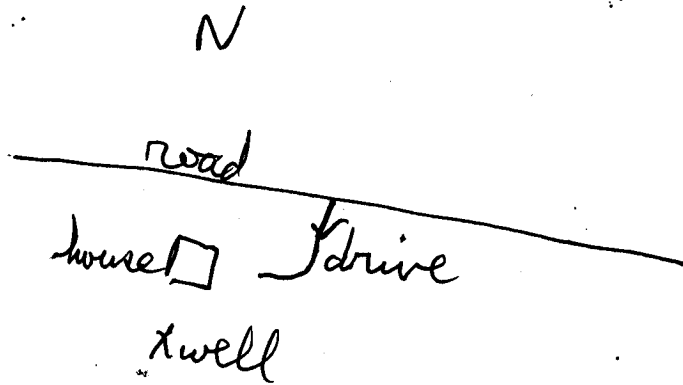 N
road
house drive
x well